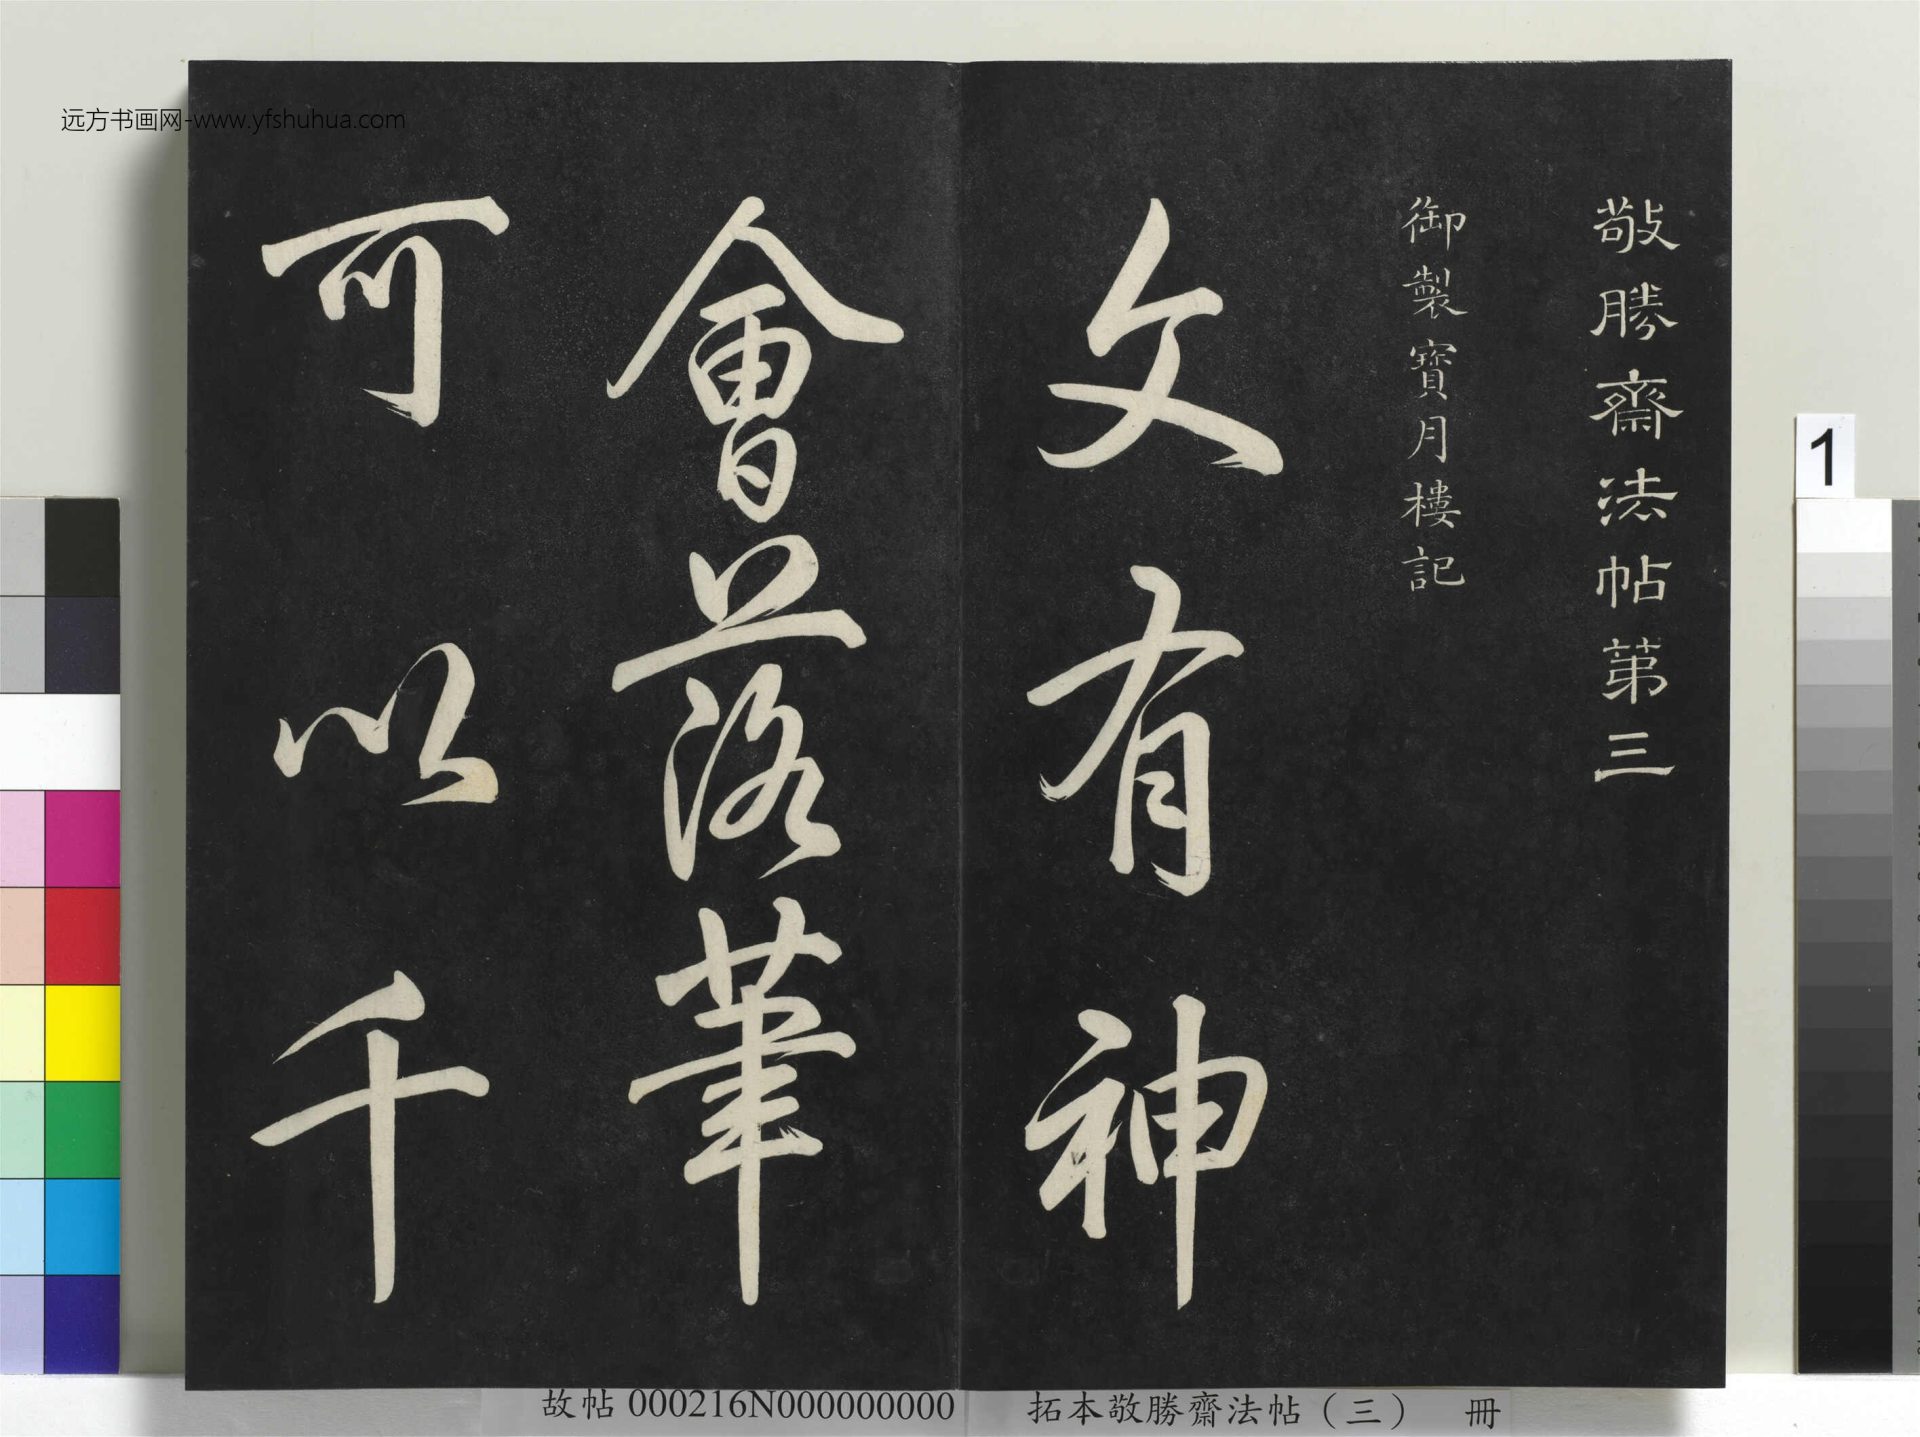 远方书画网-www.yfshuhua.com
敬勝齋法帖第三
御製寶月樓記
文有神
會並落筆
可以千
1
故帖 000216N000000000
拓本敬勝齋法帖（三） 冊